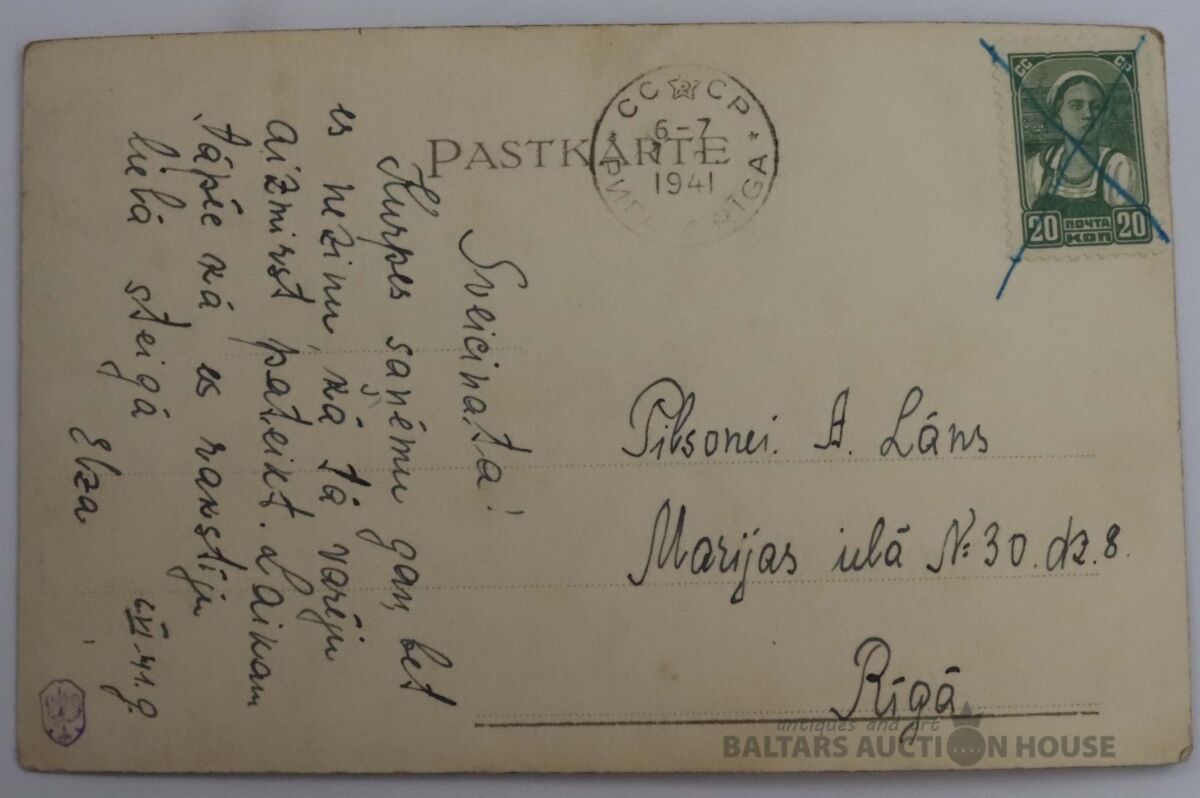 PASTKARTE
СС СР
6-7
1941
РИГА RĪGA
СС СР
20 ПОЧТА КОП 20
Sveicināta!
Kurpes saņēmu gan, bet
es nezinu, kā tā varēju
aizmirst pateikt. Laikam
tāpēc kā es rakstīju
lielā steigā
Elza
6/VI-41.g.
Pilsonei. A. Lāns
Marijas ielā № 30. dz. 8.
Rīgā
antiques and art
BALTARS AUCTION HOUSE